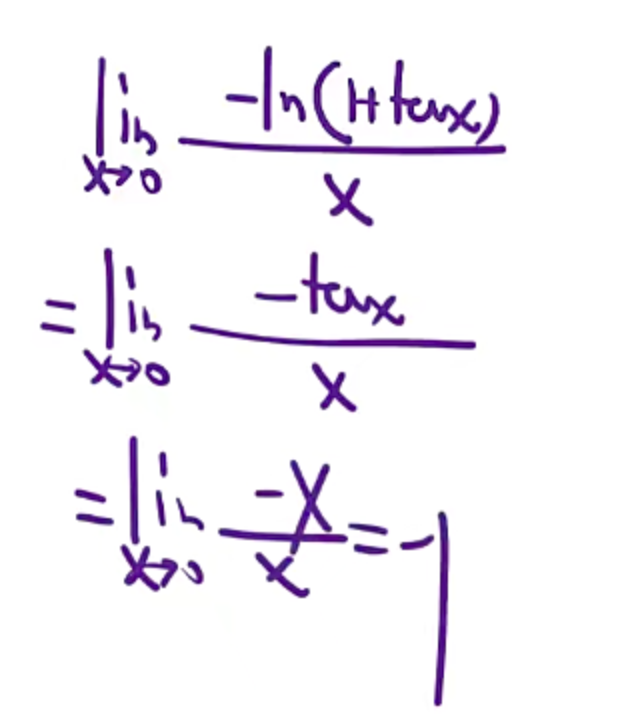 lim_{x→0} \frac{-ln(1+tanx)}{x}
= lim_{x→0} \frac{-tanx}{x}
= lim_{x→0} \frac{-x}{x} = -1